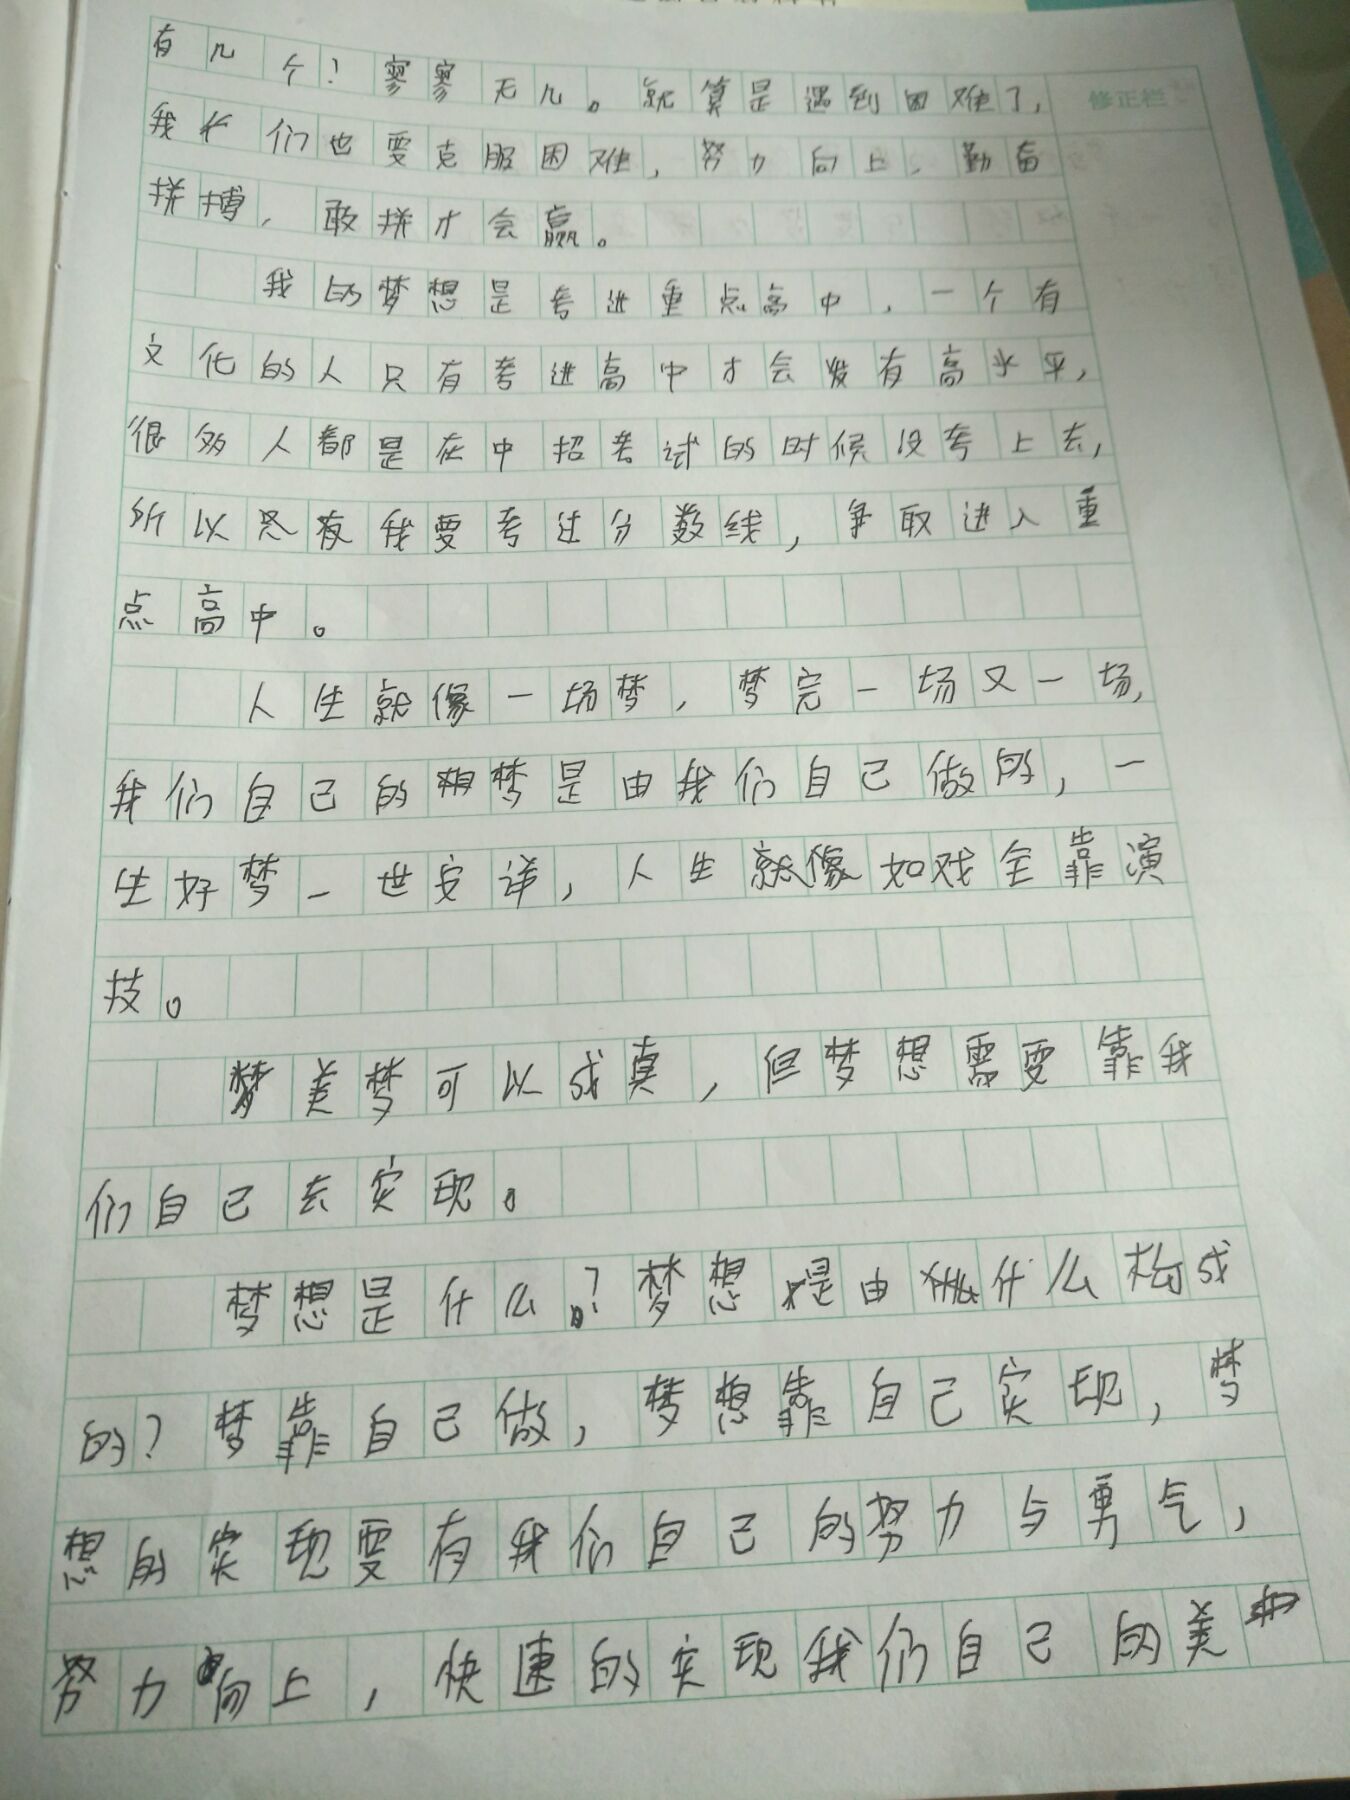 有几个？寥寥无几。就算是遇到困难了，
修正栏
我们也要克服困难，努力向上，勤奋
拼搏，敢拼才会赢。
我的梦想是考进重点高中，一个有
文化的人只有考进高中才会发有高水平，
很多人都是在中招考试的时候没考上去，
所以我要考过分数线，争取进入重
点高中。
人生就像一场梦，梦完一场又一场，
我们自己的梦是由我们自己做的，一
生好梦一世安详，人生就像如戏全靠演
技。
美梦可以成真，但梦想需要靠我
们自己去实现。
梦想是什么？梦想是由什么构成
的？梦靠自己做，梦想靠自己实现，梦
想的实现要有我们自己的努力与勇气，
努力向上，快速的实现我们自己的美